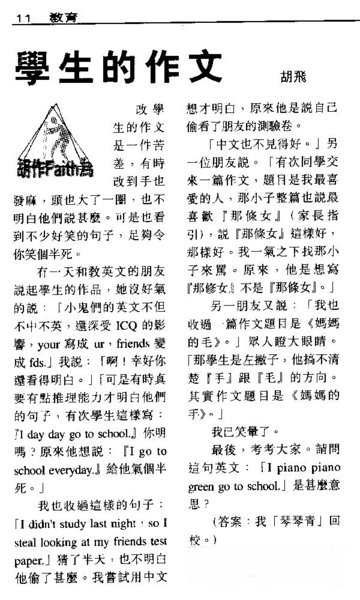 11 教育
學生的作文
胡飛
胡作Faith為
改學
生的作文
是一件苦
差，有時
改到手也
發麻，頭也大了一圈，也不
明白他們説甚麼。可是也看
到不少好笑的句子，足夠令
你笑個半死。
有一天和教英文的朋友
説起學生的作品，她沒好氣
的説：「小鬼們的英文不但
不中不英，還深受 ICQ 的影
響，your 寫成 ur，friends 變
成 fds.」我説：「啊！幸好你
還看得明白。」「可是有時真
要有點推理能力才明白他們
的句子，有次學生這樣寫：
『I day day go to school.』你明
嗎？原來他想説：『I go to
school everyday.』給他氣個半
死。」
我也收過這樣的句子：
「I didn't study last night，so I
steal looking at my friends test
paper.」猜了半天，也不明白
他偷了甚麼。我嘗試用中文
想才明白，原來他是説自己
偷看了朋友的測驗卷。
「中文也不見得好。」另
一位朋友説。「有次同學交
來一篇作文，題目是我最喜
愛的人，那小子整篇也説最
喜歡『那條女』(家長指
引)，説『那條女』這樣好，
那樣好。我一氣之下找那小
子來罵。原來，他是想寫
『那修女』不是『那條女』。」
另一朋友又説：「我也
收過一篇作文題目是《媽媽
的毛》。」眾人瞪大眼睛。
「那學生是左撇子，他搞不清
楚『手』跟『毛』的方向。
其實作文題目是《媽媽的
手》。」
我已笑暈了。
最後，考考大家。請問
這句英文：「I piano piano
green go to school.」是甚麼意
思？
(答案：我「琴琴青」回
校。)